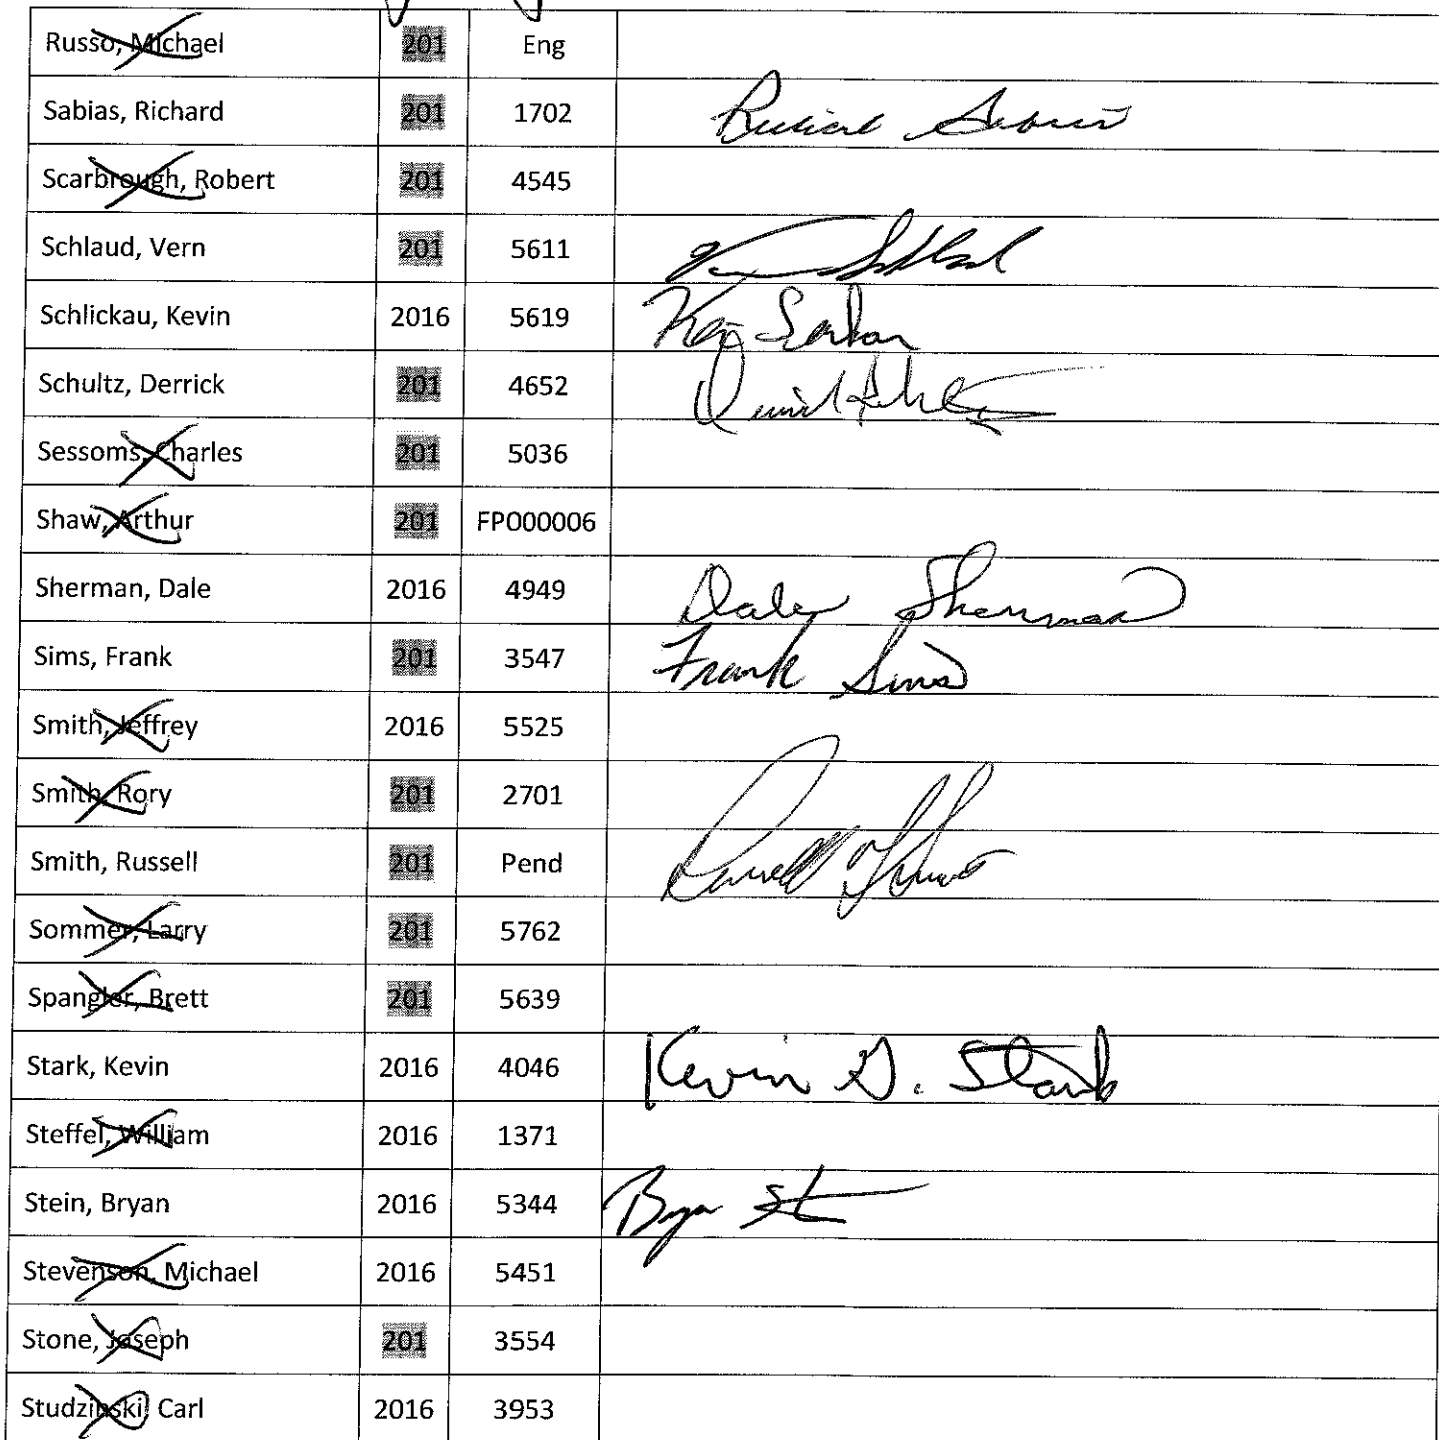 Russo, Michael 201 Eng
Sabias, Richard 201 1702 Richard Sabias
Scarbrough, Robert 201 4545
Schlaud, Vern 201 5611
Schlickau, Kevin 2016 5619
Schultz, Derrick 201 4652
Sessoms, Charles 201 5036
Shaw, Arthur 201 FP000006
Sherman, Dale 2016 4949 Dale Sherman
Sims, Frank 201 3547 Frank Sims
Smith, Jeffrey 2016 5525
Smith, Rory 201 2701
Smith, Russell 201 Pend
Sommer, Larry 201 5762
Spangler, Brett 201 5639
Stark, Kevin 2016 4046 Kevin D. Stark
Steffel, William 2016 1371
Stein, Bryan 2016 5344
Stevenson, Michael 2016 5451
Stone, Joseph 201 3554
Studzinski, Carl 2016 3953